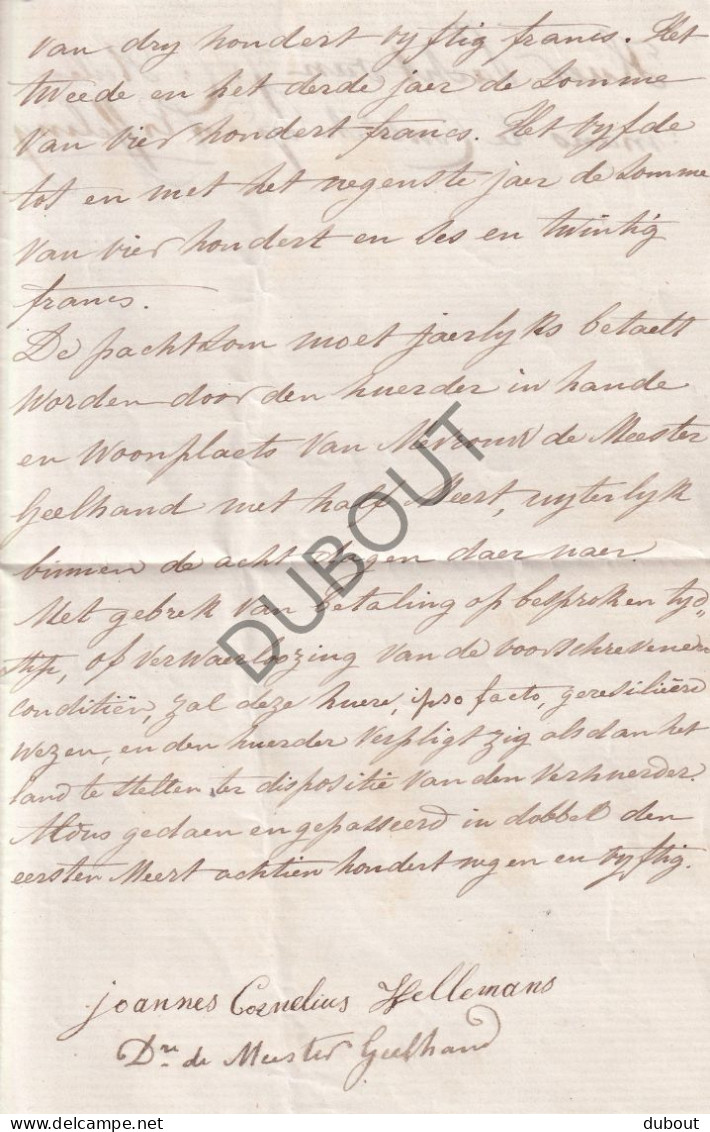 van dry hondert vyftig francs. Het
tweede en het derde jaer de Somme
van vier hondert francs. Het vyfde
tot en met het negenste jaer de Somme
van vier hondert en ses en twintig
francs.
De pachtsom moet jaerlyks betaelt
worden door den huerder in hande
en woonplaets van Mevrouw de Meester
Geelhand met half Meert, uyterlyk
binnen de acht dagen daer naer.
Met gebrek van betaling op besproken tyd„
stip, of verwaerloozing van de voorschrevene
conditiën, zal deze huere, ipso facto, geresilieerd
wezen, en den huerder verpligt zig alsdan het
land te stellen ter dispositie van den verhuerder.
Aldus gedaen en gepasseerd in dobbel den
eersten Meert achtien hondert negen en vyftig.
Joannes Cornelius Hellemans
D^re de Meester Geelhand
DUBOUT
delcampe.net
dubout